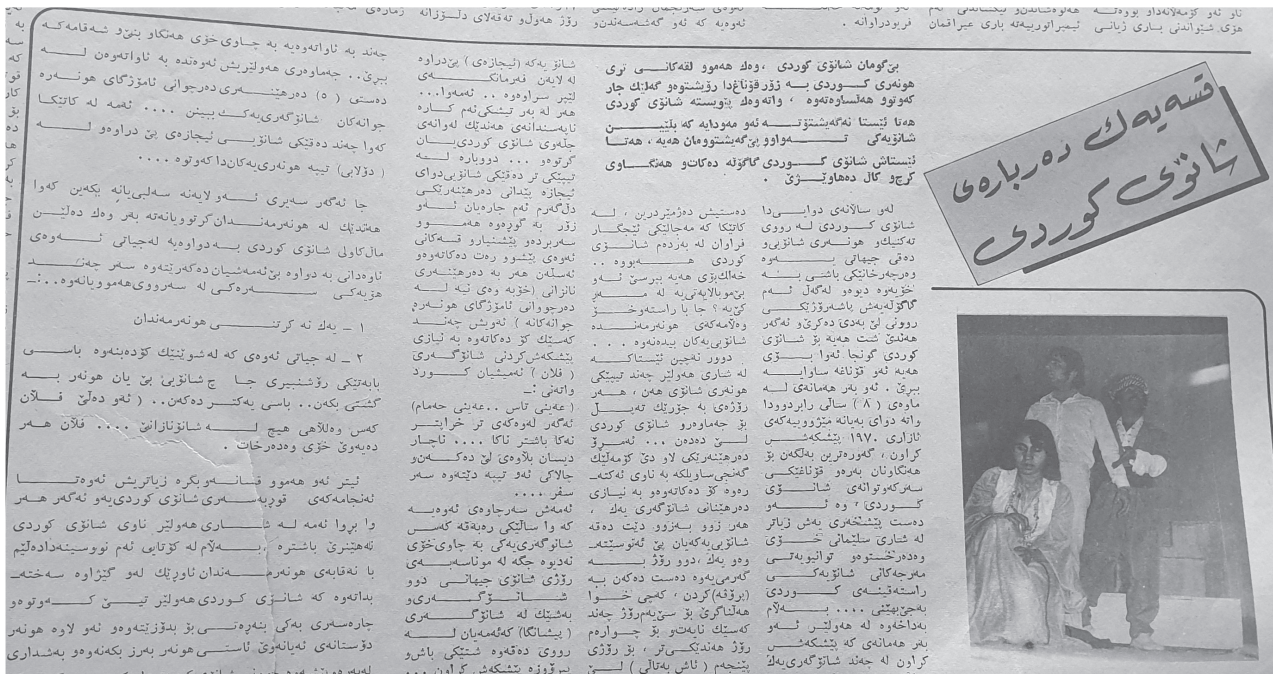 قسەیەك دەربارەی
شانۆی كوردی
بێ گومان شانۆی كوردی ، وەك هەموو لقەكانی تری
هونەری كوردی بە زۆر قۆناغدا رۆیشتوەو گەلێك جار
كەوتوو هەڵساوەتەوە ، واتە وەك پێویستە شانۆی كوردی
هەتا ئێستا نەگەیشتۆتە ئەو مەودایە كە بڵێین
شانۆیەكی تەواوو پێ گەیشتوومان هەیە ، هەتا
ئێستاش شانۆی كوردی گاگۆڵە دەكات و هەنگاوی
كرچ و كاڵ دەهاوێژێ .
لەو ساڵانەی دوایی دا
شانۆی كوردی لە رووی
تەكنیك و هونەری شانۆیی و
دەقی جیهانی یەوە
وەرچەرخانێكی باشی بە
خۆیەوە دیوەو لەگەڵ ئەم
گاگۆڵەیەش پاشەرۆژێكی
روونی لێ بەدی دەكرێ و ئەگەر
هەندێ شت هەیە بۆ شانۆی
كوردی گونجا ئەوا بۆی
هەیە ئەو قۆناغە ساوایە
ببڕێ . ئەو بەر هەمانەی لە
ماوەی (٨) ساڵی رابردوودا
واتە دوای بەیانە مێژوویەكەی
ئازاری ١٩٧٠ پێشكەش
كراون ، گەورەترین بەڵگەن بۆ
هەنگاونان بەرەو قۆناغێكی
سەركەوتوانەی شانۆی
كوردی ، وە ئەو
دەست پێشخەری یەش زیاتر
لە شاری سلێمانی خۆی
وەدەرخستوەو توانیویەتی
مەرجەكانی شانۆیەكی
راستەقینەی كوردی
بەجێ بهێنێ .... بەڵام
بەداخەوە لە هەولێر ئەو
بەر هەمانەی كە پێشكەش
كراون لە چەند شانۆگەری یەك
دەستیش دەژمێردرین ، لە
كاتێكا كە مەجالێكی ئێجگار
فراوان لە بەردەم شانۆی
كوردی هەبووە ..
خەڵك بۆی هەیە بپرسێ ئەو
بێ موبالاتی یە لە مەڕ
كێ یە ؟ جا با راستەوخۆ
وەڵامەكەی هونەرمەندە
شانۆیی یەكان بیدەنەوە ...
دوور نەچین ئێستاكە
لە شاری هەولێر چەند تیپێكی
هونەری شانۆی هەن ، هەر
رۆژەی بە جۆرێك تەپڵ
بۆ جەماوەرو شانۆی كوردی
لێ دەدەن ... ئەمرۆ
دەرهێنەرێكی لاو دێ كۆمەڵێك
گەنجی ساویلكە بە ناوی ئەكتە‌ـ
رەوە كۆ دەكاتەوەو بە نیازی
دەرهێنانی شانۆگەری یەك ،
هەر زوو بەزوو دێت دەقە
شانۆیی یەكەیان پێ ئەنوسێتەـ
وەو یەك ،دوو رۆژ بە
گەرمی یەوە دەست دەكەن بە
(پرۆڤە)كردن ، كەچی خوا
هەڵناگرێ بۆ سێ یەم رۆژ چەند
كەسێك نایەت و بۆ چوارەم
رۆژ هەندێكی تر ، بۆ رۆژی
پێنجەم ( ئاش بەتاڵی ) لێ
شانۆ یەكە (ئیجازەی) پێ دراوە
لە لایەن فەرمانگەی
لێپر سراوەوە .. ئەموا...
هەر لە بەر تیشكی ئەم كارە
ناپەسندانەی هەندێك لەوانەی
جڵەوی شانۆی كوردی یان
گرتوەو ... دووبارە لە
تیپێكی تر دەقێكی شانۆیی دوای
ئیجازە پێدانی دەرهێنەرێكی
دڵگەرم ئەم جارەیان ئەو
زۆر بە گوڕەوە هەموو
سەربردەو پێشنیارو قسەكانی
ئەوەی پێشوو رەت دەكاتەوەو
ئەسڵەن هەر بە دەرهێنەری
نازانی (خۆیە وەی نیە لە
دەرچووانی ئامۆژگای هونەرە
جوانەكانە ) ئەویش چەند
كەسێك كۆ دەكاتەوە بە نیازی
پێشكەش كردنی شانۆگەری
( فڵان ) ئەمیشیان كورد
واتەنی :ـ
( عەینی تاس ..عەینی حەمام)
ئەگەر لەوەكەی تر خراپتر
نەكا باشتر ناكا .... ناچار
دیسان بڵاوەی لێ دەكەن و
چالاكی ئەو تیپە دێتەوە سەر
سفر ....
ئەمەش سەرچاوەی ئەوەیە
كە وا ساڵێكی رەبەقە كەس
شانۆگەری یەكی بە چاوی خۆی
نەدیوە جگە لە موناسەبەی
رۆژی شانۆی جیهانی دوو
شانۆگەری و
بەشێك لە شانۆگەری
( پیشانگا) كەئەمەیان لە
رووی دەقەوە شتێكی باش و
پیرۆزە پێشكەش كراون ...
چەند بە ئاواتەوەیە بە چاوی خۆی هەنگاو بنێ و شەقامەكە
ببڕێ.. جەماوەری هەولێریش ئەوەندە بە ئاواتەوەن لە
دەستی (٥) دەرهێنەری دەرچوانی ئامۆژگای هونەرە
جوانەكان شانۆگەری یەك ببینن .... ئەمە لە كاتێكا
كەوا چەند دەقێكی شانۆیی ئیجازەی پێ دراوەو لە
( دۆلابی) تیپە هونەری یەكان دا كەوتوە ....
جا ئەگەر سەیری ئەو لایەنە سەلبی یانە بكەین كەوا
هەندێك لە هونەرمەندان گرتوویانەتە بەر وەك دەڵێن
ماڵ كاولی شانۆی كوردی بە دواوەیە لەجیاتی ئەوەی
ئاوەدانی بە دواوە بێ ئەمەشیان دەگەرێتەوە سەر چەند
هۆیەكی سەرەكی لە سەرووی هەموویانەوە..:ـ
١ ـ یەك نە گرتنی هونەرمەندان
٢ ـ لە جیاتی ئەوەی كە لەشوێنێك كۆدەبنەوە باسی
بابەتێكی رۆشنبیری جا چ شانۆیی بێ یان هونەر بە
گشتی بكەن.. باسی یەكتر دەكەن.. ( ئەو دەڵێ فڵان
كەس وەڵڵاهی هیچ لە شانۆنازانێ .... فڵان هەر
دەیەوێ خۆی وەدەرخات .
ئیتر ئەو هەموو قسانەوبگرە زیاتریش ئەوەتا
ئەنجامەكەی قوڕبەسەری شانۆی كوردی یەو ئەگەر هەر
وا بڕوا ئەمە لە شاری هەولێر ناوی شانۆی كوردی
نەهێنرێ باشترە ،بەڵام لە كۆتایی ئەم نووسینەدادەڵێم
با نەقابەی هونەرمەندان ئاوڕێك لەو گێژاوە سەختەـ
بداتەوە كە شانۆی كوردی هەولێر تیێ كەوتوەو
چارەسەری یەكی بنەڕەتی بۆ بدۆزێتەوەو ئەو لاوە هونەر
دۆستانەی ئەیانەوێ ئاستی هونەر بەرز بكەنەوەو بەشداری